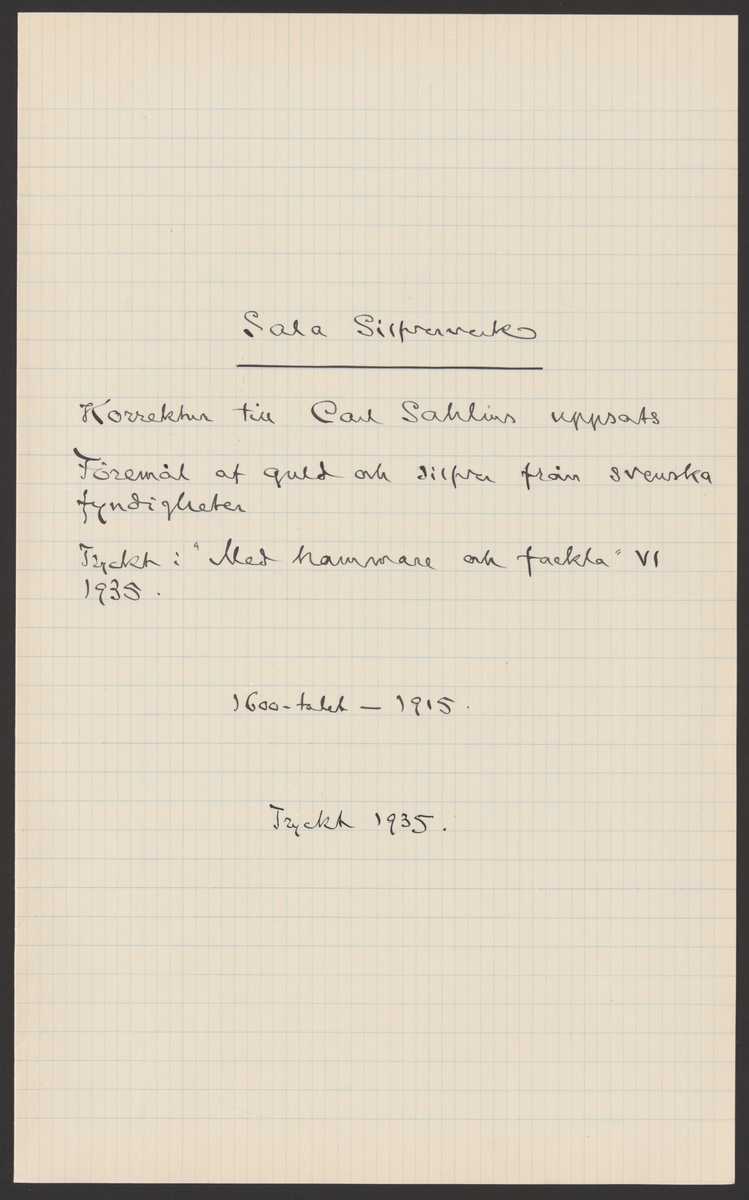 Sala Silfververk
Korrektur till Carl Sahlins uppsats
Föremål af guld och silfver från svenska
fyndigheter
Tryckt i "Med hammare och fackla" VI
1935.
1600-talet – 1915.
Tryckt 1935.